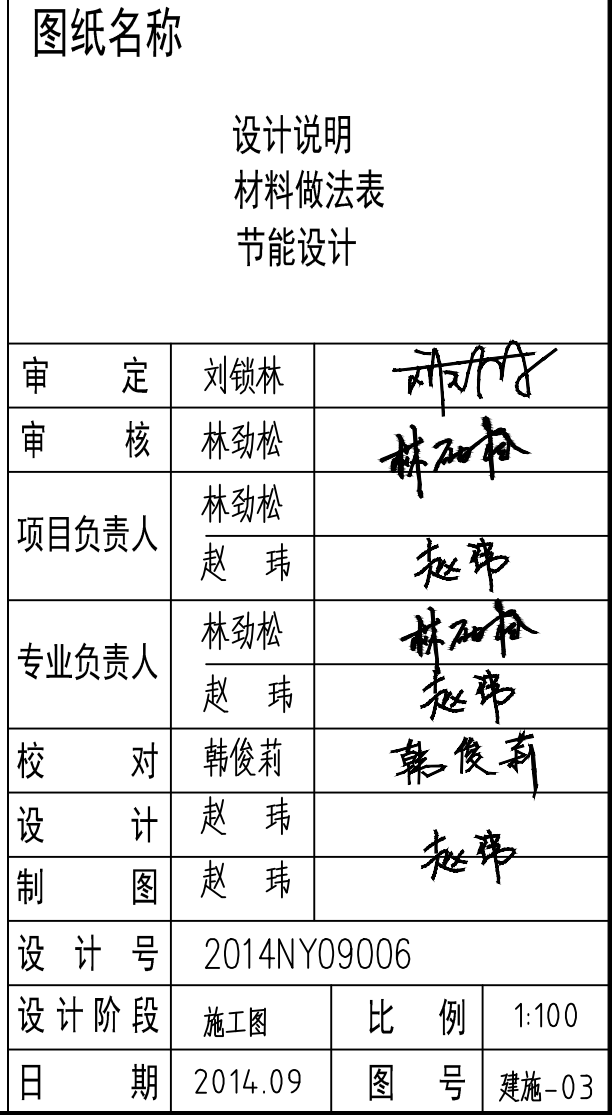 图纸名称
设计说明
材料做法表
节能设计
审 定 刘锁林
审 核 林劲松 林劲松
项目负责人 林劲松
赵 玮 赵玮
专业负责人 林劲松 林劲松
赵 玮 赵玮
校 对 韩俊莉 韩俊莉
设 计 赵 玮
赵玮
制 图 赵 玮
设 计 号 2014NY09006
设计阶段 施工图 比 例 1:100
日 期 2014.09 图 号 建施-03